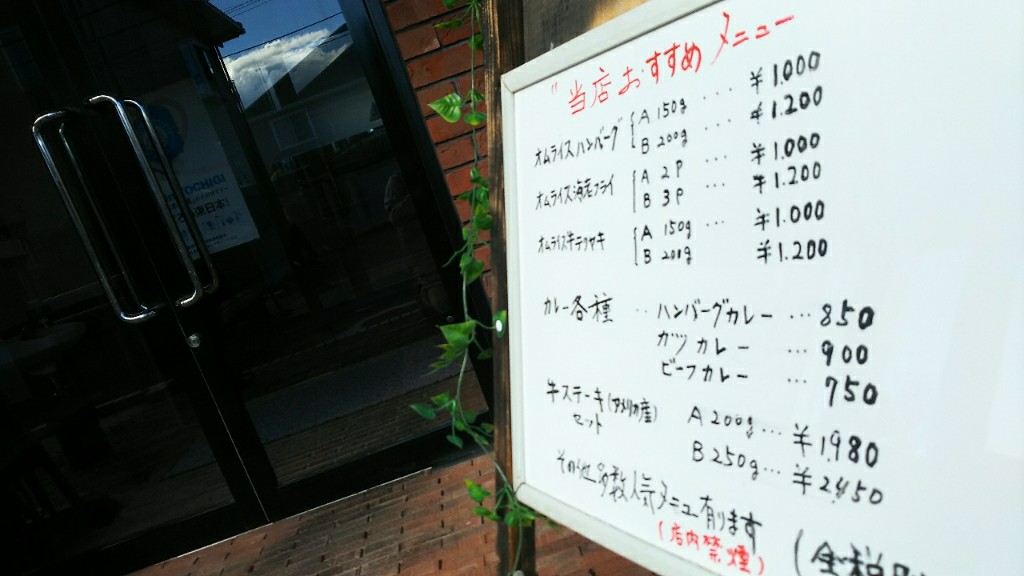 "当店おすすめメニュー
オムライスハンバーグ A 150g ... ¥1.000
B 200g ... ¥1.200
オムライス海老フライ A 2P ... ¥1.000
B 3P ... ¥1.200
オムライス牛テリヤキ A 150g ¥1.000
B 200g ¥1.200
カレー各種 ‥ ハンバーグカレー ... 850
カツカレー ... 900
ビーフカレー ... 750
牛ステーキ(アメリカ産) A 200g... ¥1.980
セット B 250g... ¥2450
その他多数人気メニュー有ります
(店内禁煙)
(全税
OCHIGI
日本!